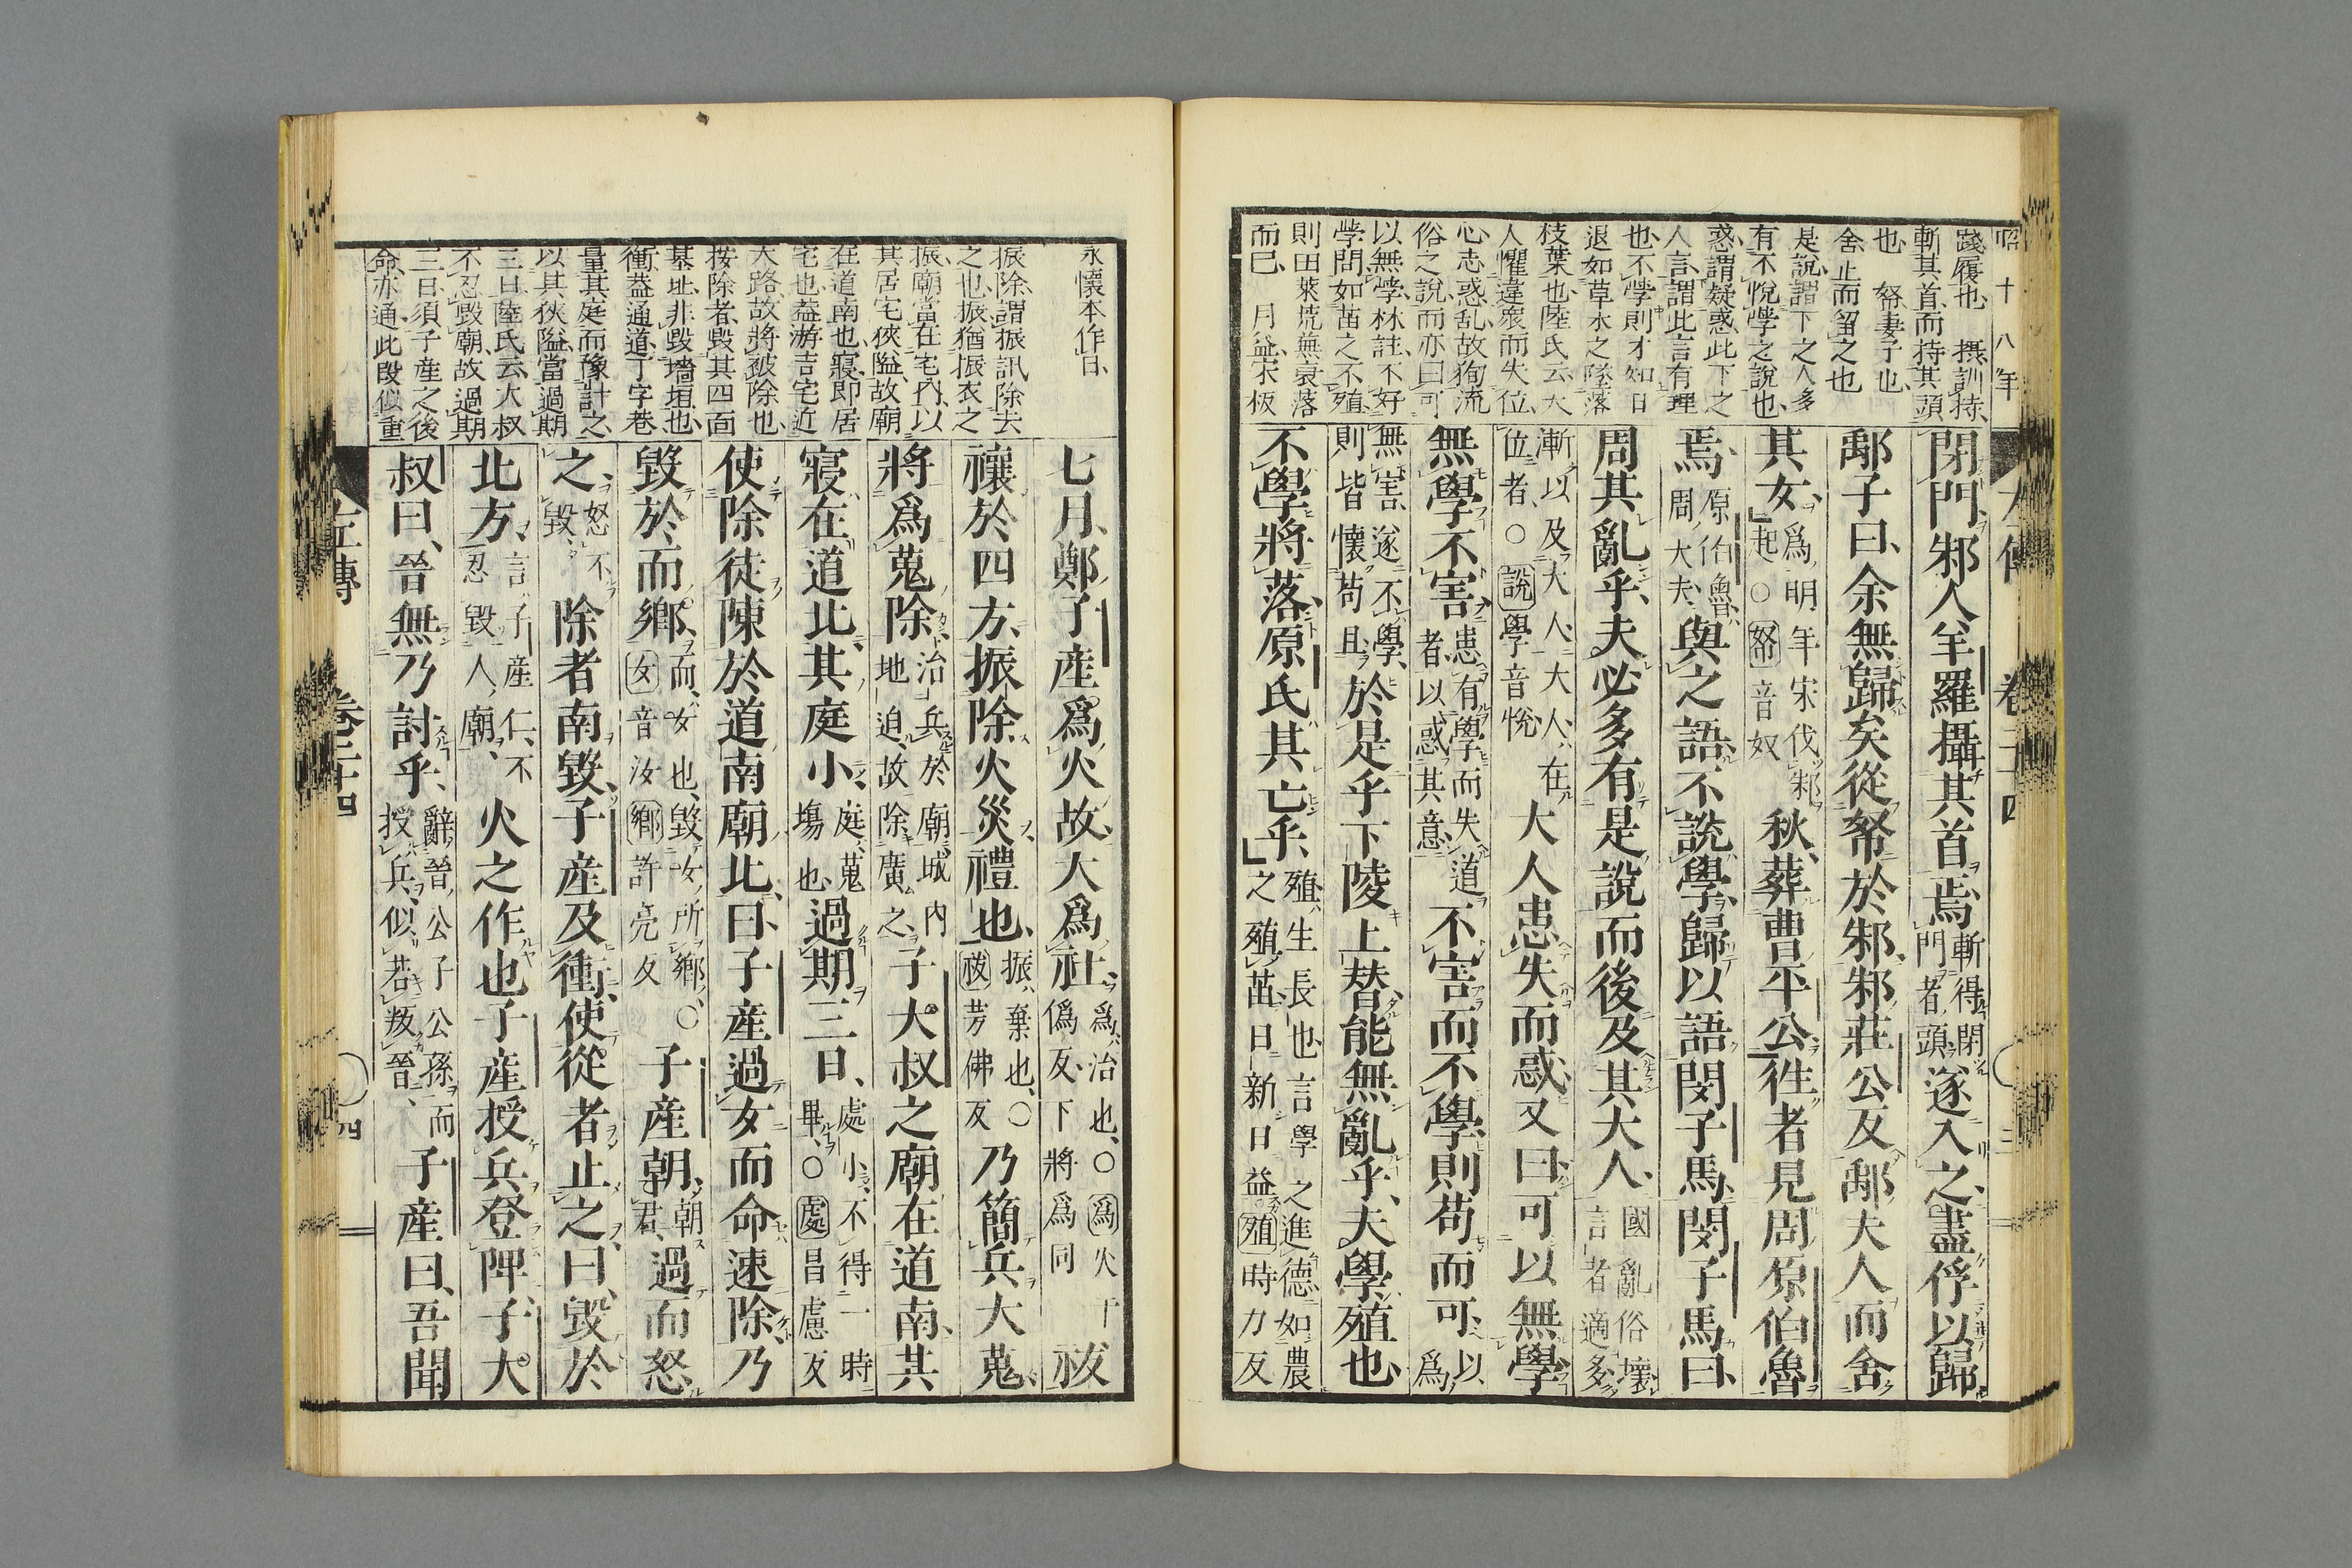 昭十八年
踐履也　摂訓持
斬其首而持其頭
也　帑妻子也
舍止而留之也
是說謂下之人多
有不悅學之說也
惑謂疑惑此下之
人言謂此言有理
也不學則才知日
退如草木之墜落
枝葉也陸氏云大
人懼違衆而失位
心志惑乱故狥流
俗之說而亦曰可
以無學林註不好
學問如苗之不殖
則田萊荒蕪衰落
而已　月益宋板
閉門邾人羊羅攝其首焉斬得閉門者頭遂入之盡俘以歸
鄅子曰余無歸矣從帑於邾邾莊公反鄅夫人而舍
其女爲明年宋伐邾起○帑音奴秋葬曹平公徃者見周原伯魯
焉原伯魯周大夫與之語不說學歸以語閔子馬閔子馬曰
周其亂乎夫必多有是說而後及其大人國亂俗壞言者適多
漸以及大人大人在位者○說學音悅大人患失而惑又曰可以無學
無學不害患有學而失道者以惑其意不害而不學則苟而可以爲
無害遂不學則皆懷苟且於是乎下陵上替能無亂乎夫學殖也
不學將落原氏其亡乎殖生長也言學之進德如農之殖苗日新日益殖時力反
左傳　卷二十四　三
永懷本作日
振除謂振訊除去
之也振猶振衣之
振廟當在宅内以
其居宅狹隘故廟
在道南也寢即居
宅也葢游吉宅近
大路故將袚除也
按除者毀其四面
基址非毀墻垣也
衝葢通道丁字巷
量其庭而豫計之
以其狹隘當過期
三日陸氏云大叔
不忍毀廟故過期
三日須子産之後
命亦通此段似重
七月鄭子産爲火故大爲社爲治也○爲火于僞反下將爲同祓
禳於四方振除火災禮也振棄也○祓芳佛反乃簡兵大蒐
將爲蒐除治兵於廟城内地迫故除廣之子大叔之廟在道南其
寢在道北其庭小庭蒐塲也過期三日處小不得一時畢○處昌慮反
使除徒陳於道南廟北曰子産過女而命速除乃
毀於而鄉而女也毀女所鄉○女音汝鄉許亮反子産朝朝君過而怒
之怒不毀除者南毀子産及衝使從者止之曰毀於
北方言子産仁不忍毀人廟火之作也子産授兵登陴子大
叔曰晉無乃討乎辭晉公子公孫而授兵似若叛晉子産曰吾聞
左傳　卷二十四　四